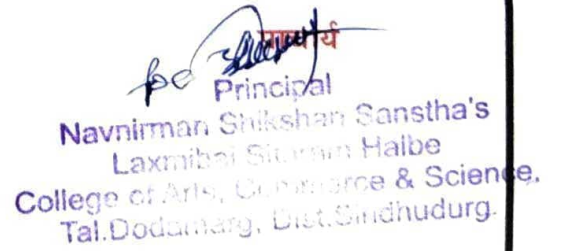 प्राचार्य
Principal
Navnirman Shikshan Sanstha's
Laxmibai Sitaram Halbe
College of Arts, Commerce & Science,
Tal.Dodamarg, Dist.Sindhudurg.